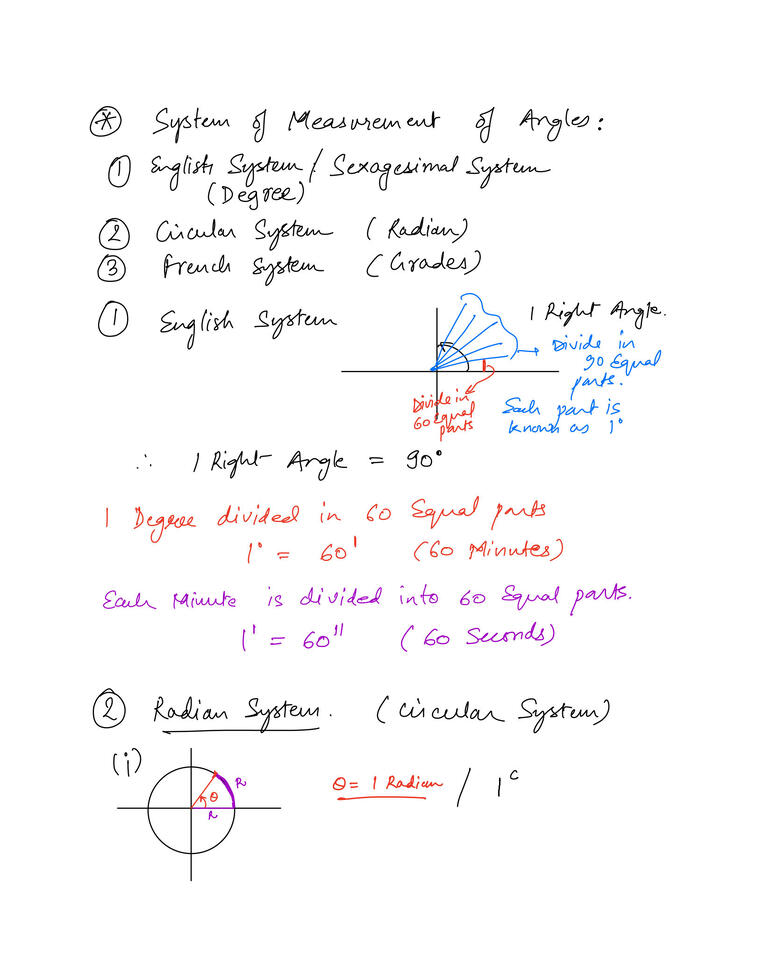 * System of Measurement of Angles:
① English System / Sexagesimal System
(Degree)
② Circular System (Radian)
③ French System (Grades)
① English System
1 Right Angle.
→ Divide in
90 Equal
parts.
Each part is
known as 1°
Divide in
60 equal
parts
∴ 1 Right Angle = 90°
1 Degree divided in 60 Equal parts
1° = 60' (60 Minutes)
Each Minute is divided into 60 Equal parts.
1' = 60" (60 Seconds)
② Radian System. (Circular System)
(i)
R
θ
R
θ = 1 Radian / 1ᶜ